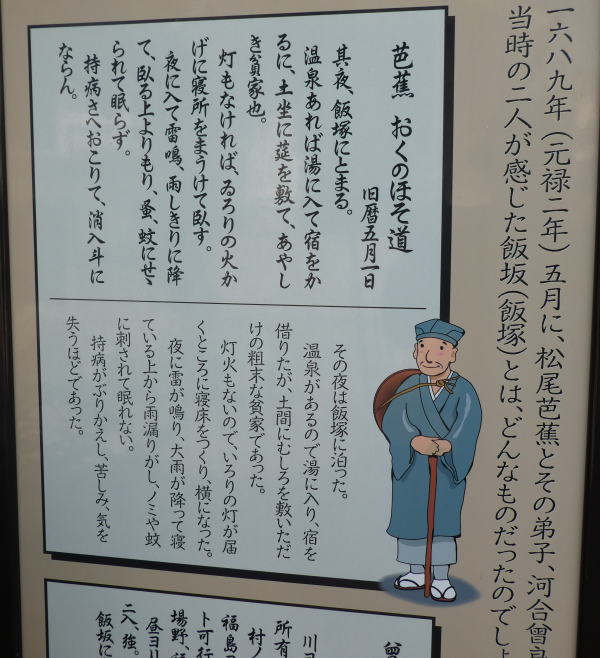 一六八九年（元禄二年）五月に、松尾芭蕉とその弟子、河合曾良
当時の二人が感じた飯坂（飯塚）とは、どんなものだったのでしょ
芭蕉　おくのほそ道
旧暦五月一日
其夜、飯塚にとまる。
温泉あれば湯に入て宿をか
るに、土坐に莚を敷て、あやし
き貧家也。
灯もなければ、ゐろりの火か
げに寝所をまうけて臥す。
夜に入て雷鳴、雨しきりに降
て、臥る上よりもり、蚤、蚊にせゝ
られて眠らず。
持病さへおこりて、消入斗に
ならん。
その夜は飯塚に泊った。
温泉があるので湯に入り、宿を
借りたが、土間にむしろを敷いただ
けの粗末な貧家であった。
灯火もないので、いろりの灯が届
くところに寝床をつくり、横になった。
夜に雷が鳴り、大雨が降って寝
ている上から雨漏りがし、ノミや蚊
に刺されて眠れない。
持病がぶりかえし、苦しみ、気を
失うほどであった。
曾
川ヨ
村ノ
所有
福島
ト可行
場野、
昼ヨリ
二入、強。
飯坂に